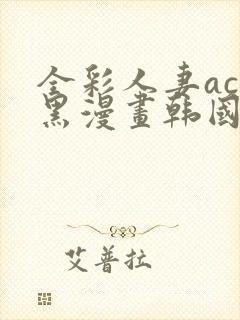 全彩人妻ac
黑漫畫韩國
艾普拉